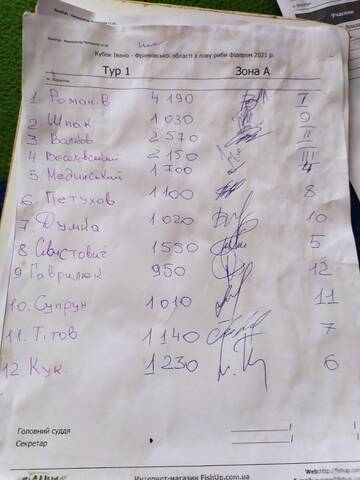 Кубок Івано - Франківської області з лову риби фідером 2021 р.
Тур 1 Зона А
1 Роман.В 4 190 I
2 Шпак 1 030 9
3 Волков 2 570 II
4 Веселовський 2 150 III
5 Мединський 1700 4
6. Петухов 1 100 8
7 Думка 1 020 10
8. Свистович 1 550 5
9 Гаврилюк 950 12
10. Супрун 1 010 11
11. Тітов 1 140 7
12 Кук. 1 230 6
Головний суддя
Секретар
Интернет-магазин FishUp.com.ua